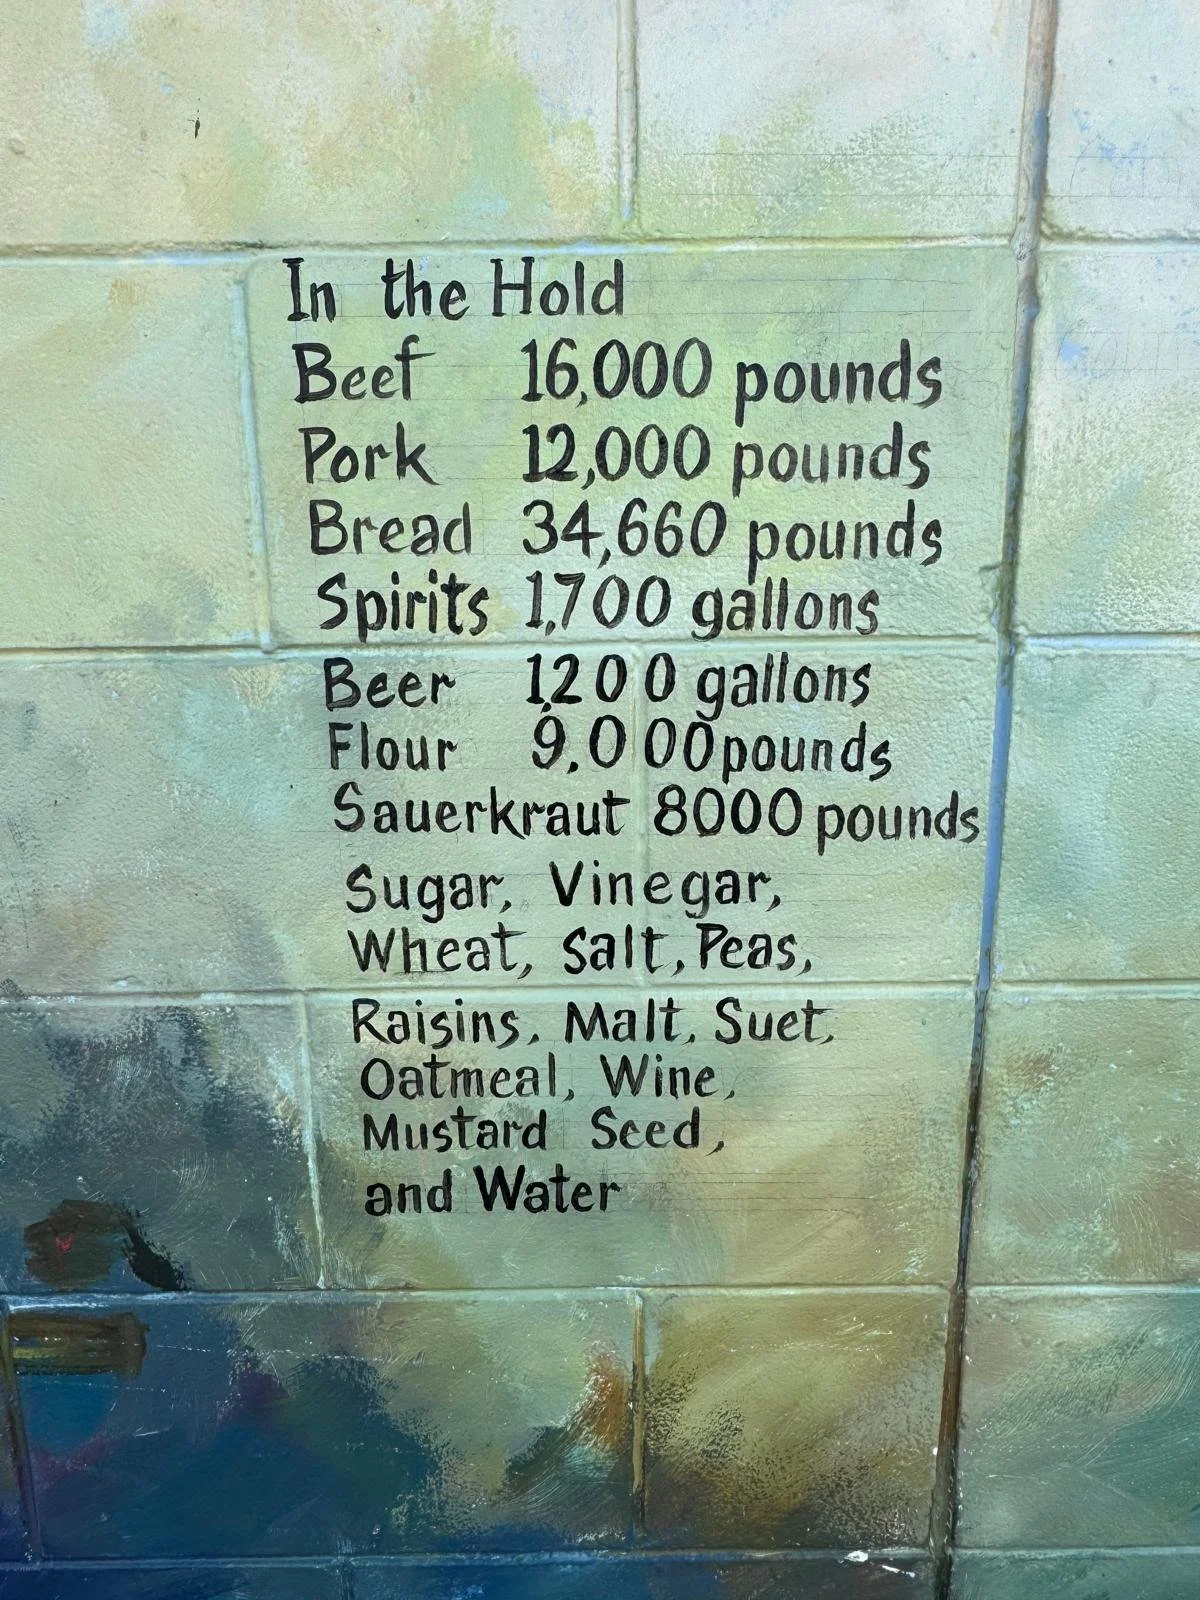 In the Hold
Beef 16,000 pounds
Pork 12,000 pounds
Bread 34,660 pounds
Spirits 1,700 gallons
Beer 1,200 gallons
Flour 9,000 pounds
Sauerkraut 8000 pounds
Sugar, Vinegar,
Wheat, Salt, Peas,
Raisins, Malt, Suet,
Oatmeal, Wine,
Mustard Seed,
and Water